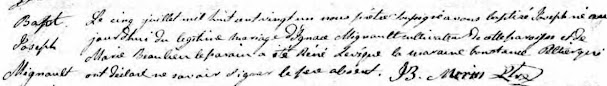 Bapt. Le cinq juillet mil huit cent vingt un nous prêtre soussigné avons baptisé Joseph né au
Joseph jourd'hui du legitime mariage d'Ignace Mignault cultivateur de cette paroisse et de
Mignault Marie Beaulieu le parain a été Réné Levêque la maraine Constance
ont déclaré ne savoir signer le pere absent. JB. Morin Ptre